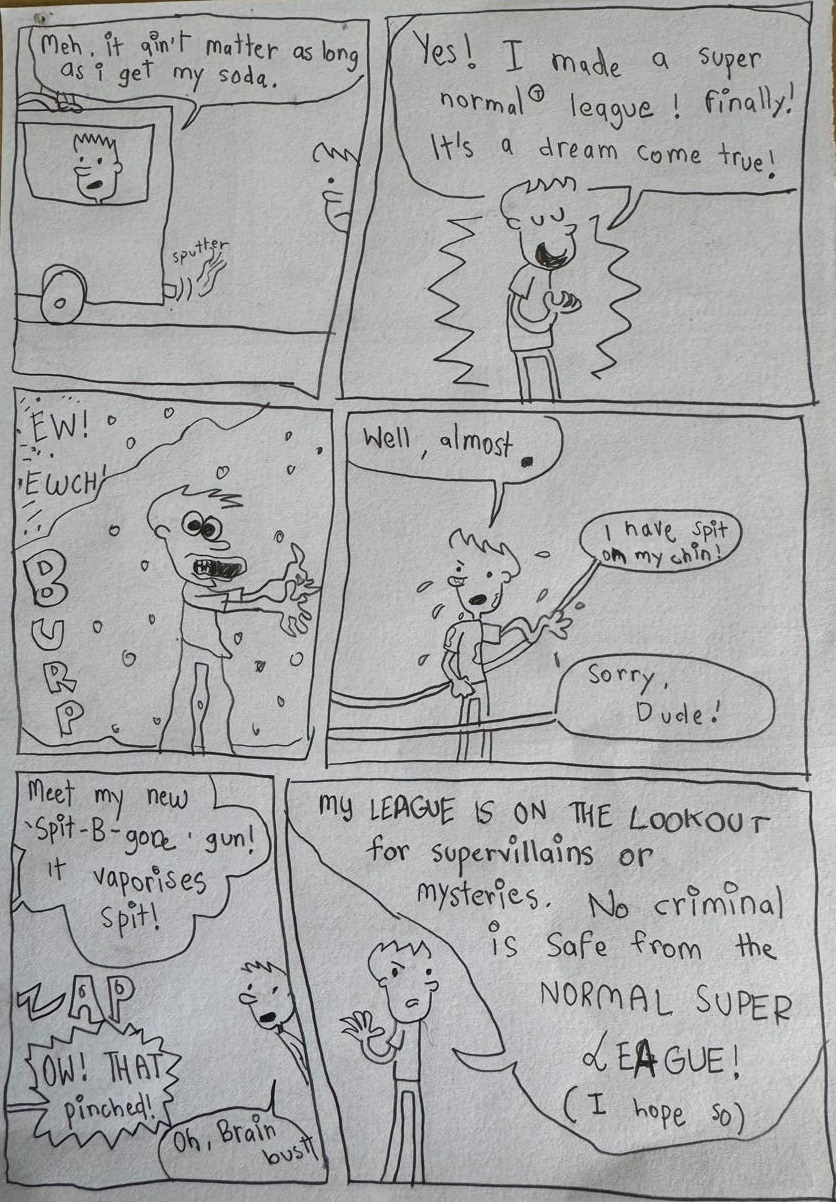 Meh, it ain't matter as long
as i get my soda.
sputter
Yes! I made a super
normal league! Finally!
It's a dream come true!
EW!
EWCH!
BURP
Well, almost.
I have spit
on my chin!
Sorry,
Dude!
Meet my new
'Spit-B-gone' gun!
it vaporises
spit!
ZAP
OW! THAT
pinched!
Oh, Brain
MY LEAGUE IS ON THE LOOKOUT
for supervillains or
mysteries. No criminal
is safe from the
NORMAL SUPER
LEAGUE!
(I hope so)